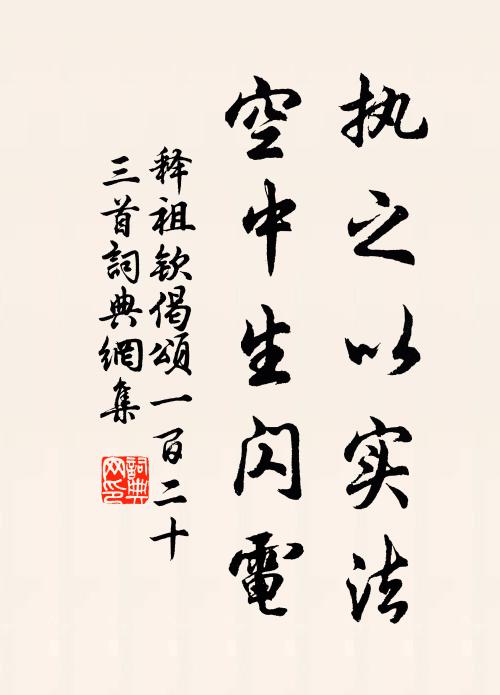 执之以实法
空中生闪電
释祖钦偈頌一百二十
三首詞典網集
詞典
网印